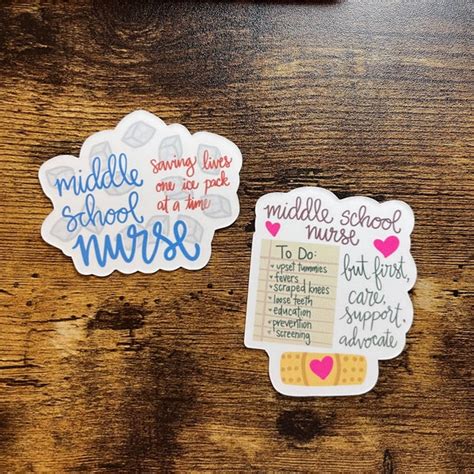 middle
school
nurse
saving lives
one ice pack
at a time
middle school
nurse
To Do:
upset tummies
fevers
scraped knees
loose teeth
education
prevention
screening
but first,
care,
support,
advocate